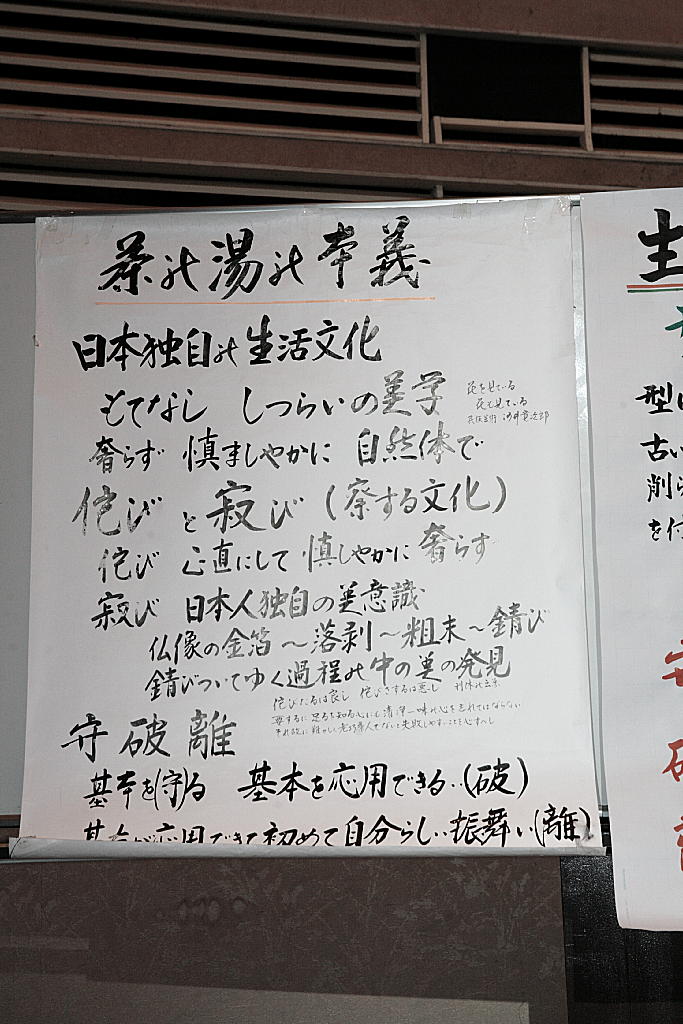 茶の湯の本義
日本独自の生活文化
もてなし しつらいの美学
花を見ている
花も見ている
奢らず 慎ましやかに 自然体で
侘び と 寂び (察する文化)
侘び 心直にして 慎しやかに 奢らず
寂び 日本人独自の美意識
仏像の金箔〜落剥〜粗末〜錆び
錆びついてゆく過程の中の美の発見
侘びたるは良し 侘びさするは悪し
守 破 離
基本を(守)る 基本を応用できる‥(破)
応用できて初めて自分らしい振舞い(離)
生
型
古い
削
を付